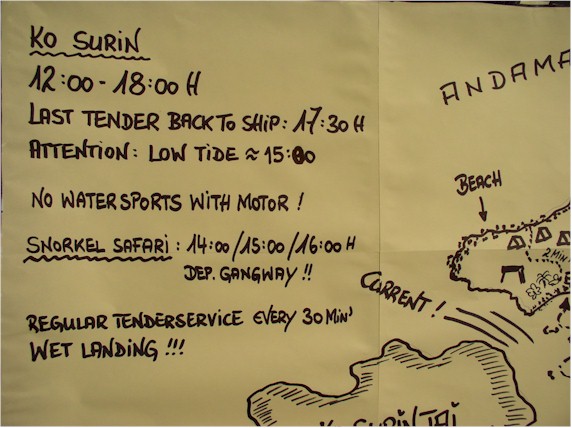 KO SURIN
12:00 - 18:00 H
LAST TENDER BACK TO SHIP: 17:30 H
ATTENTION: LOW TIDE ≈ 15:00
NO WATERSPORTS WITH MOTOR !
SNORKEL SAFARI : 14:00/15:00/16:00 H
DEP. GANGWAY !!
REGULAR TENDERSERVICE EVERY 30 MIN'
WET LANDING !!!
ANDAMA
BEACH
2 MIN
CURRENT !
KO SURIN TAI